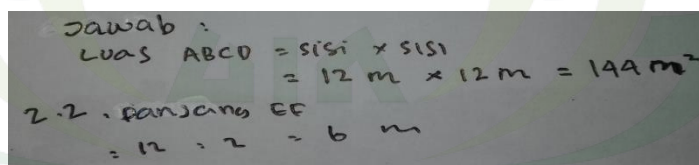 Jawab :
Luas ABCD = sisi x sisi
= 12 m x 12 m = 144 m²
2.2. Panjang EF
= 12 : 2 = 6 m